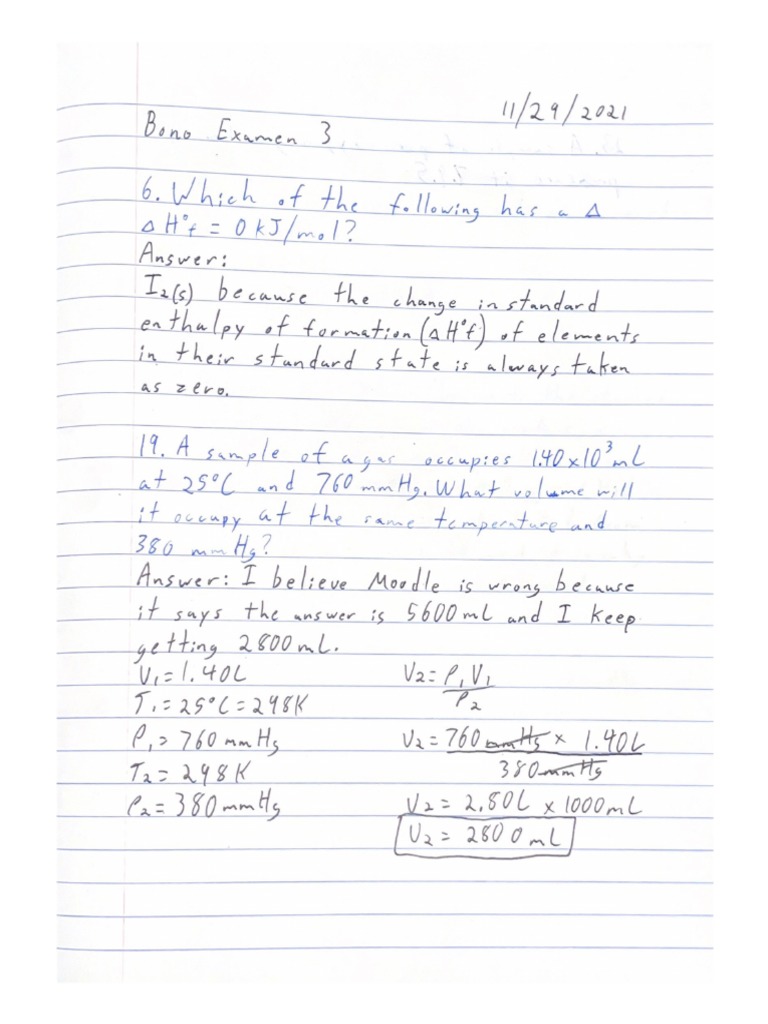 11/29/2021
Bono Examen 3
6. Which of the following has a Δ
ΔH°f = 0 kJ/mol?
Answer:
I₂(s) because the change in standard
enthalpy of formation (ΔH°f) of elements
in their standard state is always taken
as zero.
19. A sample of a gas occupies 1.40x10³ mL
at 25°C and 760 mmHg. What volume will
it occupy at the same temperature and
380 mmHg?
Answer: I believe Moodle is wrong because
it says the answer is 5600 ml and I keep
getting 2800 mL.
V₁ = 1.40L V₂ = P₁V₁
T₁ = 25°C = 298K P₂
P₁ = 760 mmHg V₂ = 760 mmHg x 1.40L
T₂ = 298K 380 mmHg
P₂ = 380 mmHg V₂ = 2.80L x 1000mL
V₂ = 2800 mL